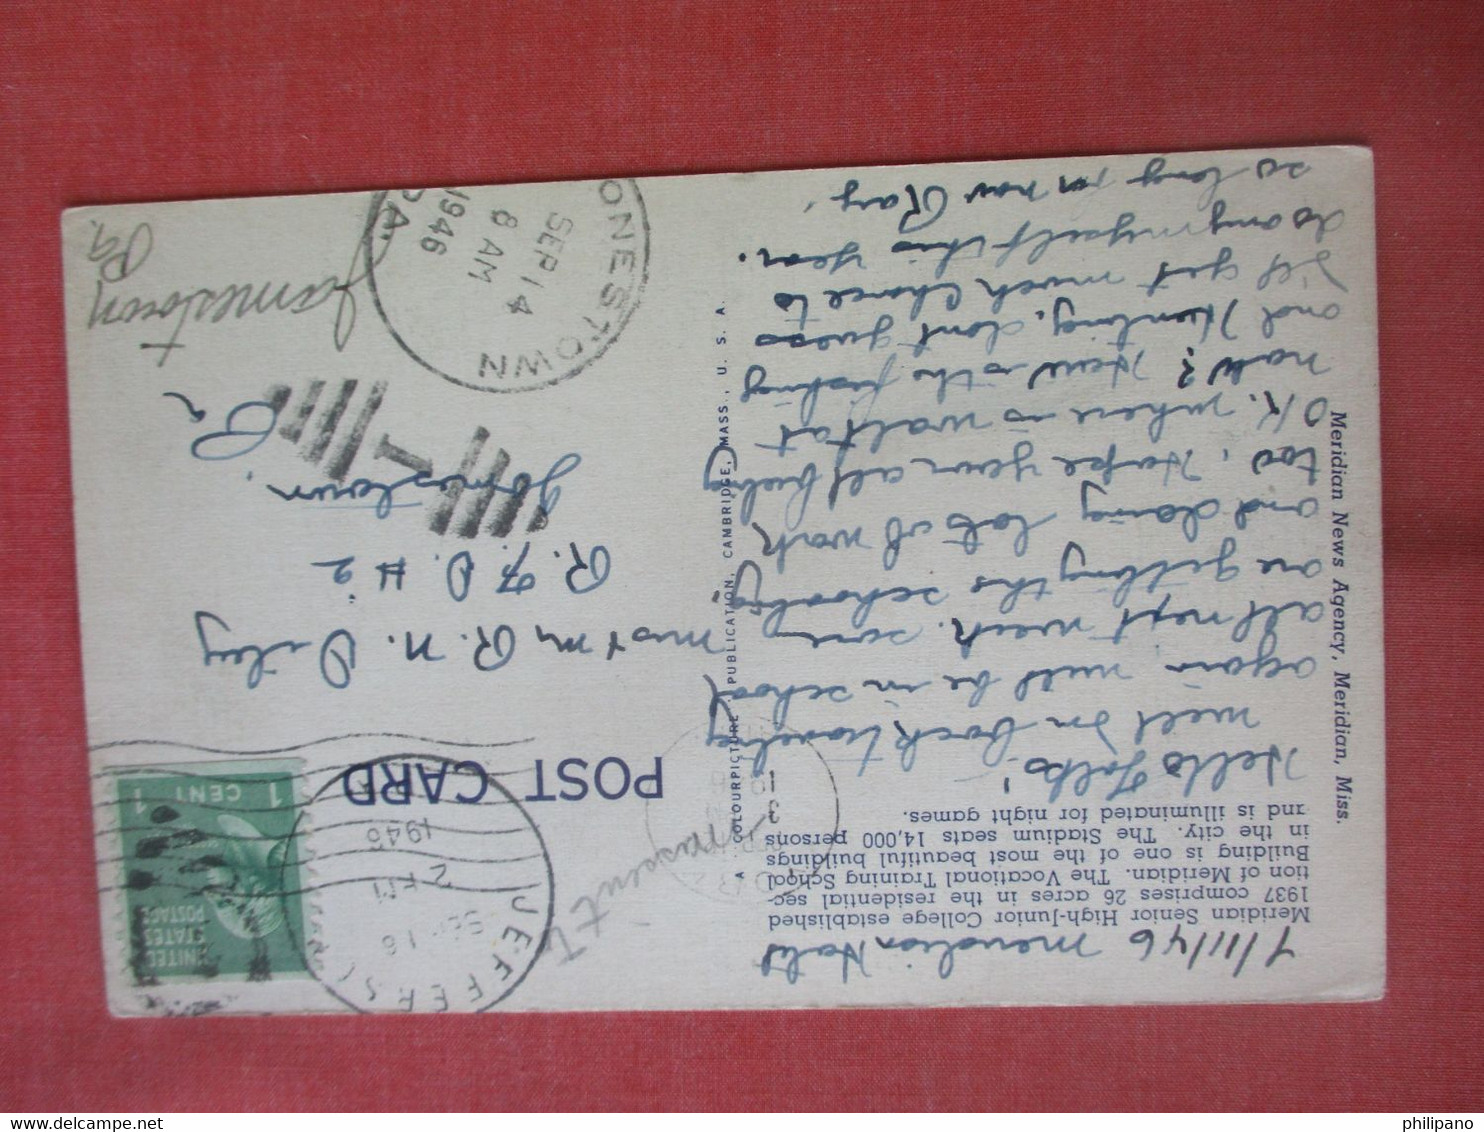 9/11/46 Meridian Hotel
Meridian Senior High-Junior College established
1937 comprises 26 acres in the residential sec-
tion of Meridian. The Vocational Training School
Building is one of the most beautiful buildings
in the city. The Stadium seats 14,000 persons
and is illuminated for night games.
Hello Folks!
Well Im back traveling
again, will be in school
all next week. sure
are getting the schooling
and doing lots of work
too. Hope your all feeling
O.K. where is Walt at
now? How is the fishing
and Hunting, dont guess
I'll get much chance to
do any myself this year.
so long for now Ray.
Meridian News Agency, Meridian, Miss.
A COLOURPICTURE PUBLICATION, CAMBRIDGE, MASS., U. S. A.
POST CARD
UNITED
STATES
POSTAGE
1 CENT 1
JEFFERSON
SEP 16
2 PM
1946
Missent
Mr & Mrs R. N. Riley
R. F. D. #2
Jamestown,
Pa
JONESTOWN
SEP 14
8 AM
1946
PA
Jamestown
Pa.
philipano